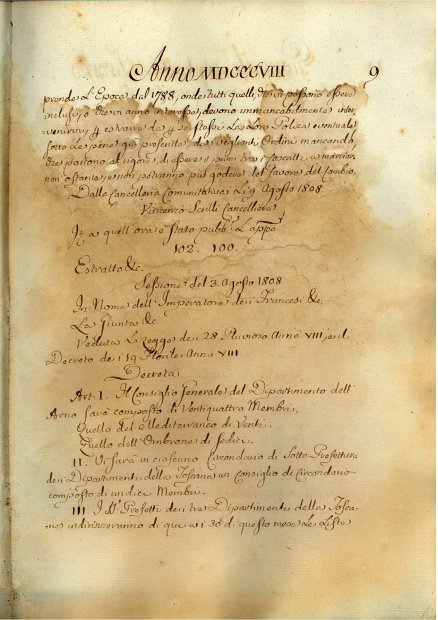 Anno MDCCCVIII 9
prende L'Epoca dal 1788, onde tutti quelli, che si possono essere
inclusi, o tre in anno devono immancabilmente inter,
venirvi, p estrarre da p se stessi Le Loro Poliza eventuale
sotto Le pene già prescritte, da veglianti Ordini mancando,
che portano al rigore di essere i primi tra i coscritti, a marciar,
non ostante, e non potranno può godere del favore del Cambio.
Dalla Cancelleria Comunitativa Li 9 Agosto 1808
Vincenzo Cancelliere
In a quell'ora è stato pubb. L'app.
102. 100.
Estratto &c.
Sessione del 3. Agosto 1808
In Nome dell'Imperatore dei Francesi &c.
La Giunta &c.
Veduta La Legge dei 28 Pluvioso Anno VIII, e il
Decreto dei 19 Florile Anno VIII
Decreta
Art. I. Il Consiglio Generale del Dipartimento dell'
Arno sarà composto di Ventiquattro Membri.
Quello del Mediterraneo di Venti.
Quello dell'Ombrone di Sedici.
II. Vi sarà in ciascuno Circondario di Sotto-Prefettura
dei Dipartimenti della Toscana un Consiglio di Circondario
composto di undici Membri.
III I SS.ri Prefetti dei tre Dipartimenti della Tosca-
na indirizzeranno di qui a i 30 di questo mese Le Liste